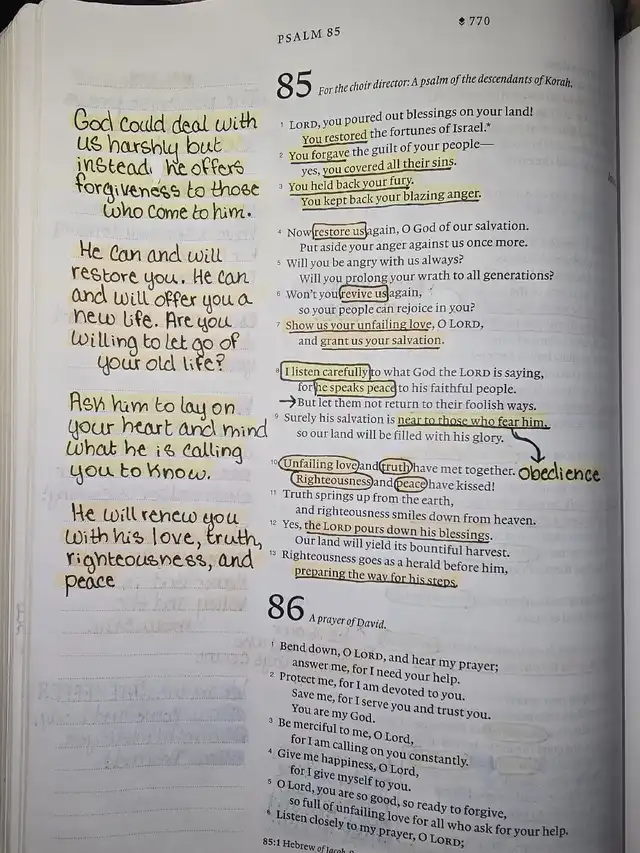 PSALM 85
770
God could deal with
us harshly but
instead, he offers
forgiveness to those
who come to him.
He can and will
restore you. He can
and will offer you a
new life. Are you
willing to let go of
your old life?
Ask him to lay on
your heart and mind
what he is calling
you to know.
He will renew you
with his love, truth,
righteousness, and
peace
85 For the choir director: A psalm of the descendants of Korah.
1 LORD, you poured out blessings on your land!
You restored the fortunes of Israel.*
2 You forgave the guilt of your people—
yes, you covered all their sins.
3 You held back your fury.
You kept back your blazing anger.
4 Now restore us again, O God of our salvation.
Put aside your anger against us once more.
5 Will you be angry with us always?
Will you prolong your wrath to all generations?
6 Won't you revive us again,
so your people can rejoice in you?
7 Show us your unfailing love, O LORD,
and grant us your salvation.
8 I listen carefully to what God the LORD is saying,
for he speaks peace to his faithful people.
But let them not return to their foolish ways.
9 Surely his salvation is near to those who fear him,
so our land will be filled with his glory.
obedience
10 Unfailing love and truth have met together.
Righteousness and peace have kissed!
11 Truth springs up from the earth,
and righteousness smiles down from heaven.
12 Yes, the LORD pours down his blessings.
Our land will yield its bountiful harvest.
13 Righteousness goes as a herald before him,
preparing the way for his steps.
86 A prayer of David.
1 Bend down, O LORD, and hear my prayer;
answer me, for I need your help.
2 Protect me, for I am devoted to you.
Save me, for I serve you and trust you.
You are my God.
3 Be merciful to me, O Lord,
for I am calling on you constantly.
4 Give me happiness, O Lord,
for I give myself to you.
5 O Lord, you are so good, so ready to forgive,
so full of unfailing love for all who ask for your help.
6 Listen closely to my prayer, O LORD;
85:1 Hebrew of Jacob.